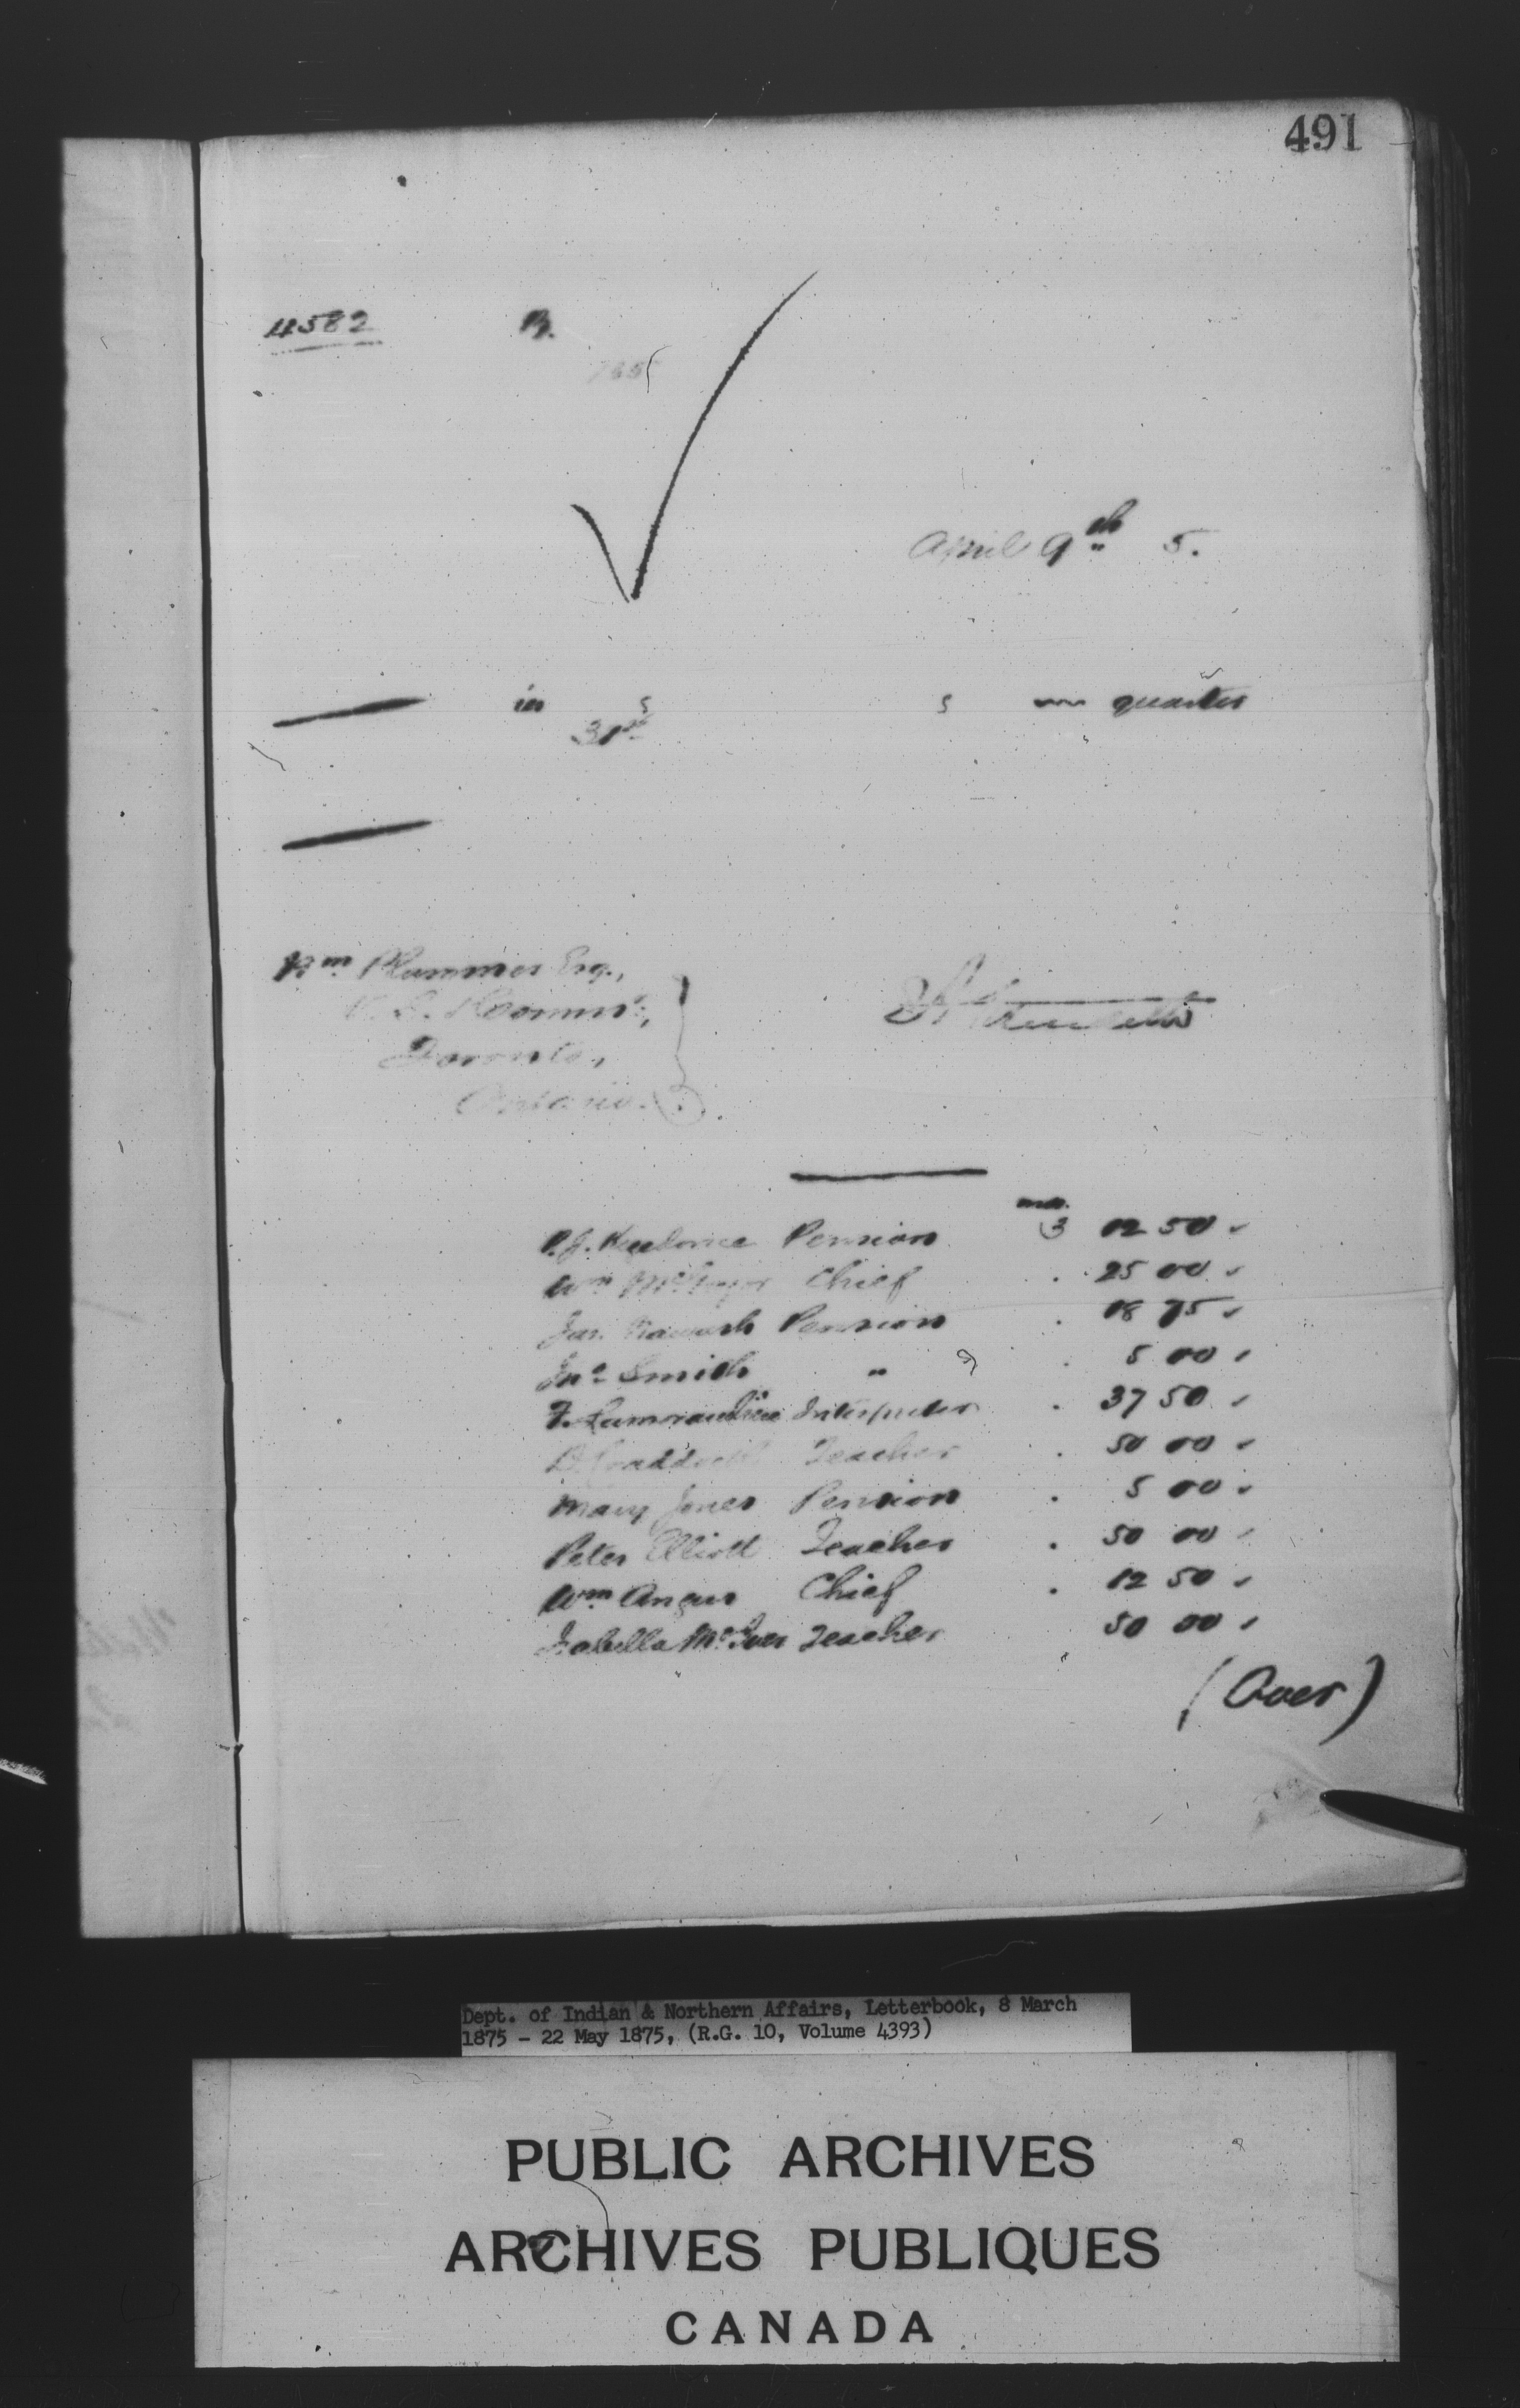 491
4582 B.
April 9th 5.
in s s quarter
31st
Wm Plummer Esq.,
Toronto,
Ontario.
mos.
P.J. Pension 3 12 50
Wm Chief 25 00
Jas. Pension 18 75
Jno Smith " 5 00
F. Lamorandiere Interpreter 37 50
B. Craddock Teacher 50 00
Mary Jones Pension 5 00
Peter Elliott Teacher 50 00
Wm Angus Chief 12 50
Isabella McIver Teacher 50 00
(Over)
Dept. of Indian & Northern Affairs, Letterbook, 8 March
1875 - 22 May 1875, (R.G. 10, Volume 4393)
PUBLIC ARCHIVES
ARCHIVES PUBLIQUES
CANADA